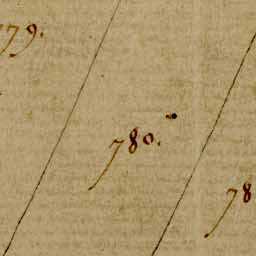 79.
780.
78